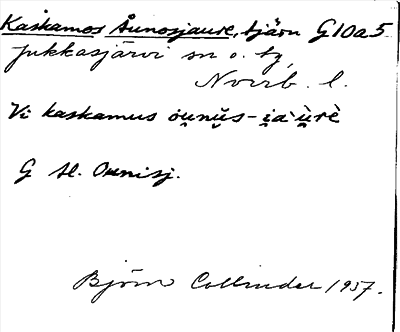 Kaskamos Åunosjaure, tjärn G10a5
Jukkasjärvi sn o. tg,
Norrb. l.
Vi kaskamus òu̯nŭs - i̯a`u̯rè
G st. Ounisj.
Björn Collinder 1957.